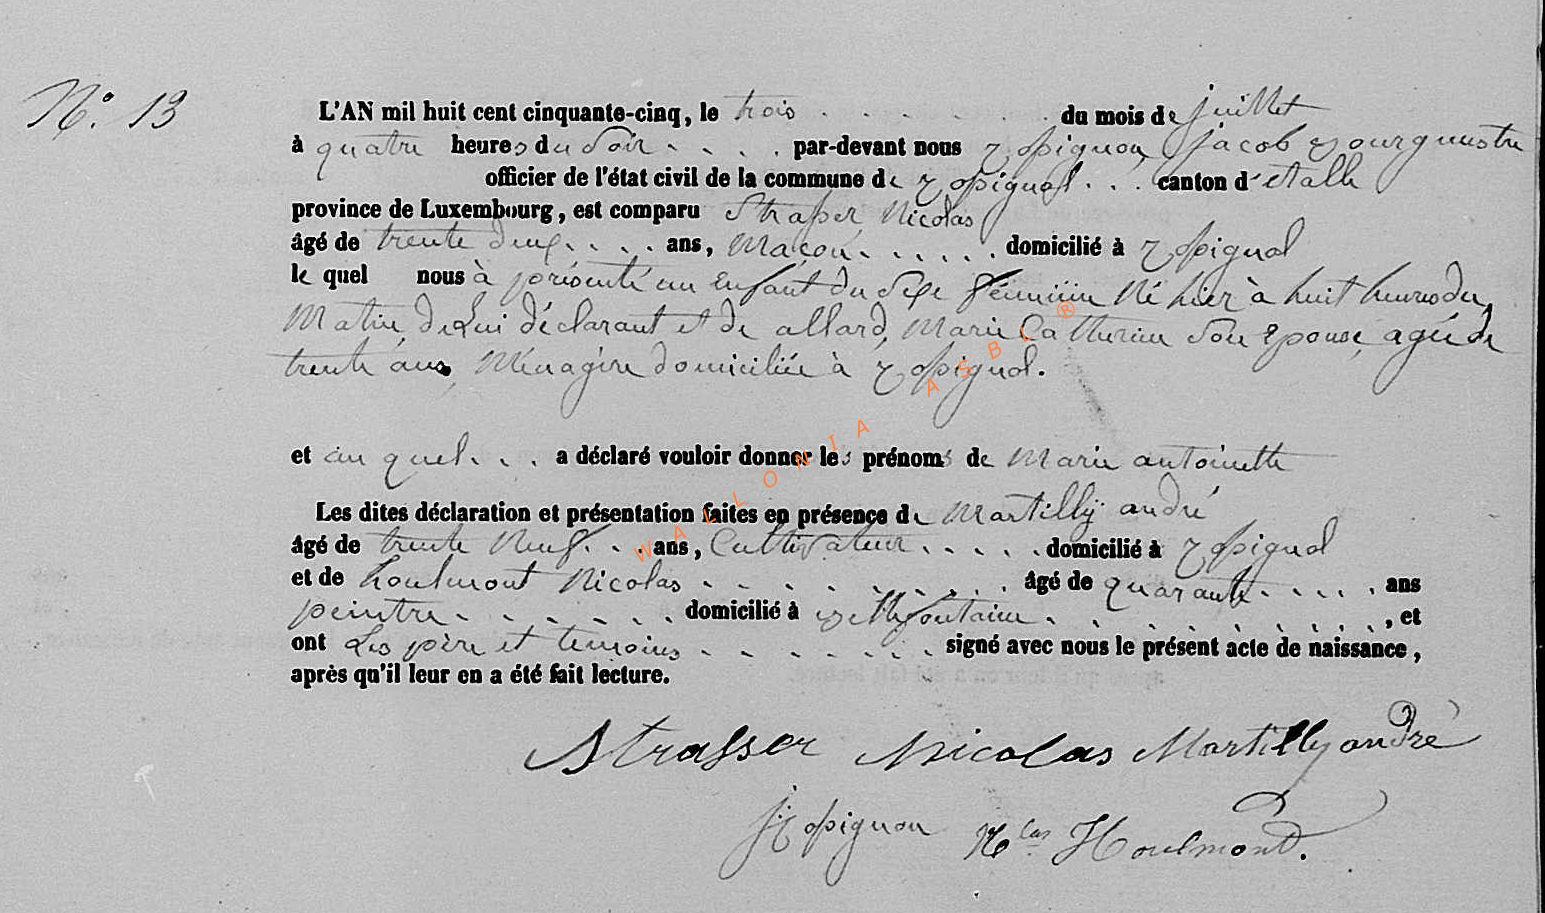 N° 13
L'AN mil huit cent cinquante-cinq, le trois . . . . . . . du mois de juillet
à quatre heures du Soir . . . . par-devant nous Jacob Bourgmestre
officier de l'état civil de la commune de . . . canton d'étalle
province de Luxembourg, est comparu Strasser Nicolas
âgé de trente deux . . . . ans, Maçon . . . . . . domicilié à
le quel nous à présenté un Enfant du Sexe féminin Né hier à huit heures du
Matin de Lui déclarant et de allard, Marie Catherine Son Epouse, agée de
trente ans, Ménagère domiciliée à
et au quel . . . a déclaré vouloir donner les prénoms de Marie antoinette
Les dites déclaration et présentation faites en présence de Martilly andré
âgé de trente Neuf . . . ans, Cultivateur . . . . . domicilié à
et de houlmont Nicolas . . . . . . . . . âgé de quarante . . . . . ans
peintre . . . . . . . domicilié à Bellefontaine . . . . . . . . . . , et
ont Les père et temoins . . . . . . . . signé avec nous le présent acte de naissance,
après qu'il leur en a été fait lecture.
Strasser Nicolas Martilly andré
N^las Houlmont.
WALLONIA ASBL ®